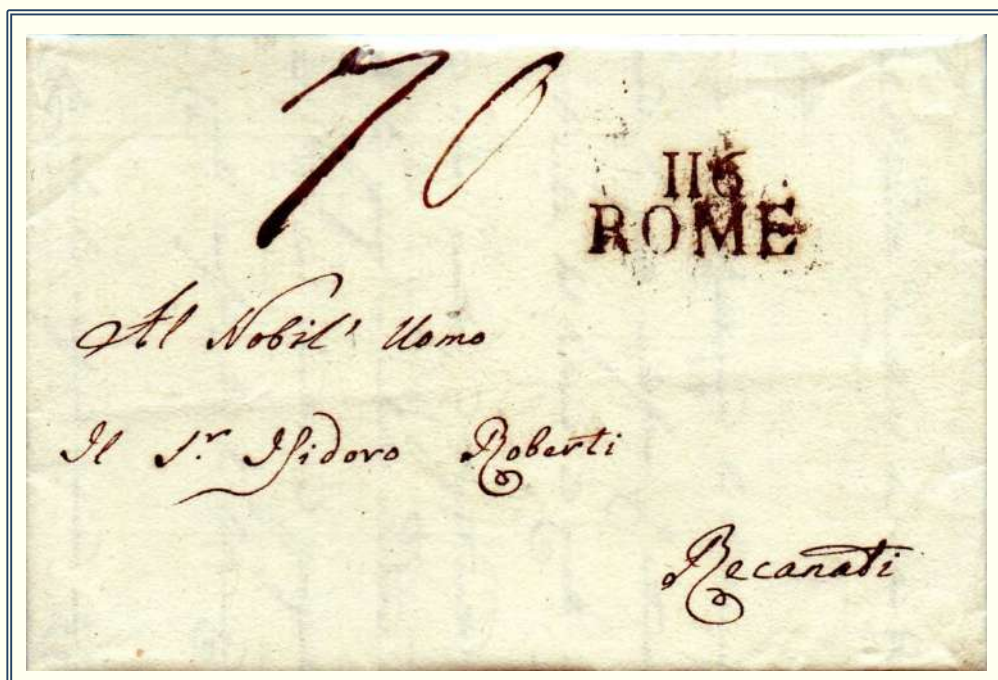 70
116
ROME
Al Nobil' Uomo
Il S.r Isidoro Roberti
Recanati